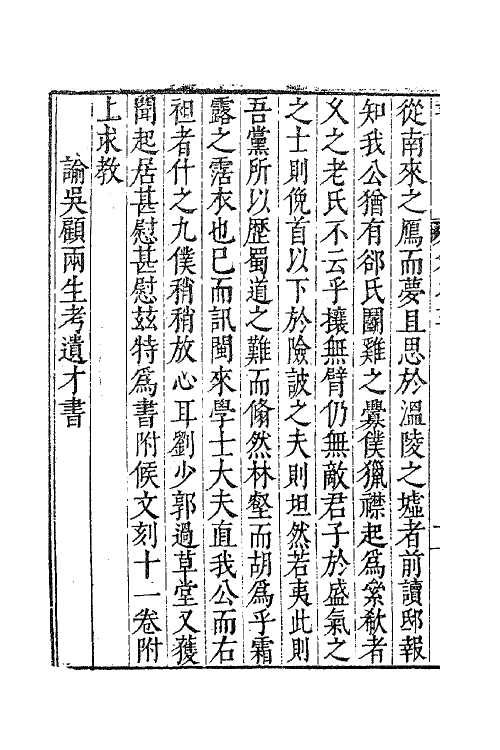 從南來之鴈而夢且思於溫陵之墟者前讀邸報
知我公猶有郤氏鬭雞之釁僕獵襟起為縈欷者
乆之老氏不云乎攘無臂仍無敵君子於盛氣之
之士則俛首以下於險詖之夫則坦然若夷此則
吾黨所以歷蜀道之難而翛然林壑而胡為乎霜
露之霑衣也已而訊閩來學士大夫直我公而右
袒者什之九僕稍稍放心耳劉少郭過草堂又獲
聞起居甚慰甚慰茲特為書附候文刻十一卷附
上求教
諭吳顧兩生考遺才書